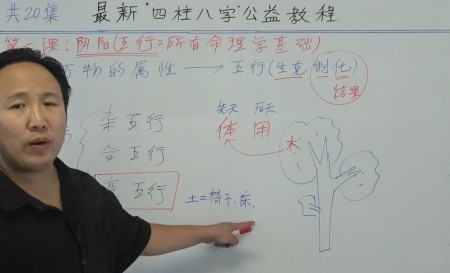 共20集 最新"四柱八字"公益教程
第一课:阴阳(五行=所有命理学基础)
万物的属性 → 五行(生克 制化)
结果
先天 后天
体 用
木
杂五行
合五行
变五行
土=椅子、床、